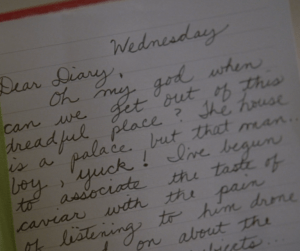 Wednesday
Dear Diary,
Oh my god when
can we get out of this
dreadful place? The house
is a palace but that man...
boy, yuck! I've begun
to associate the taste of
caviar with the pain
of listening to him drone
on about the